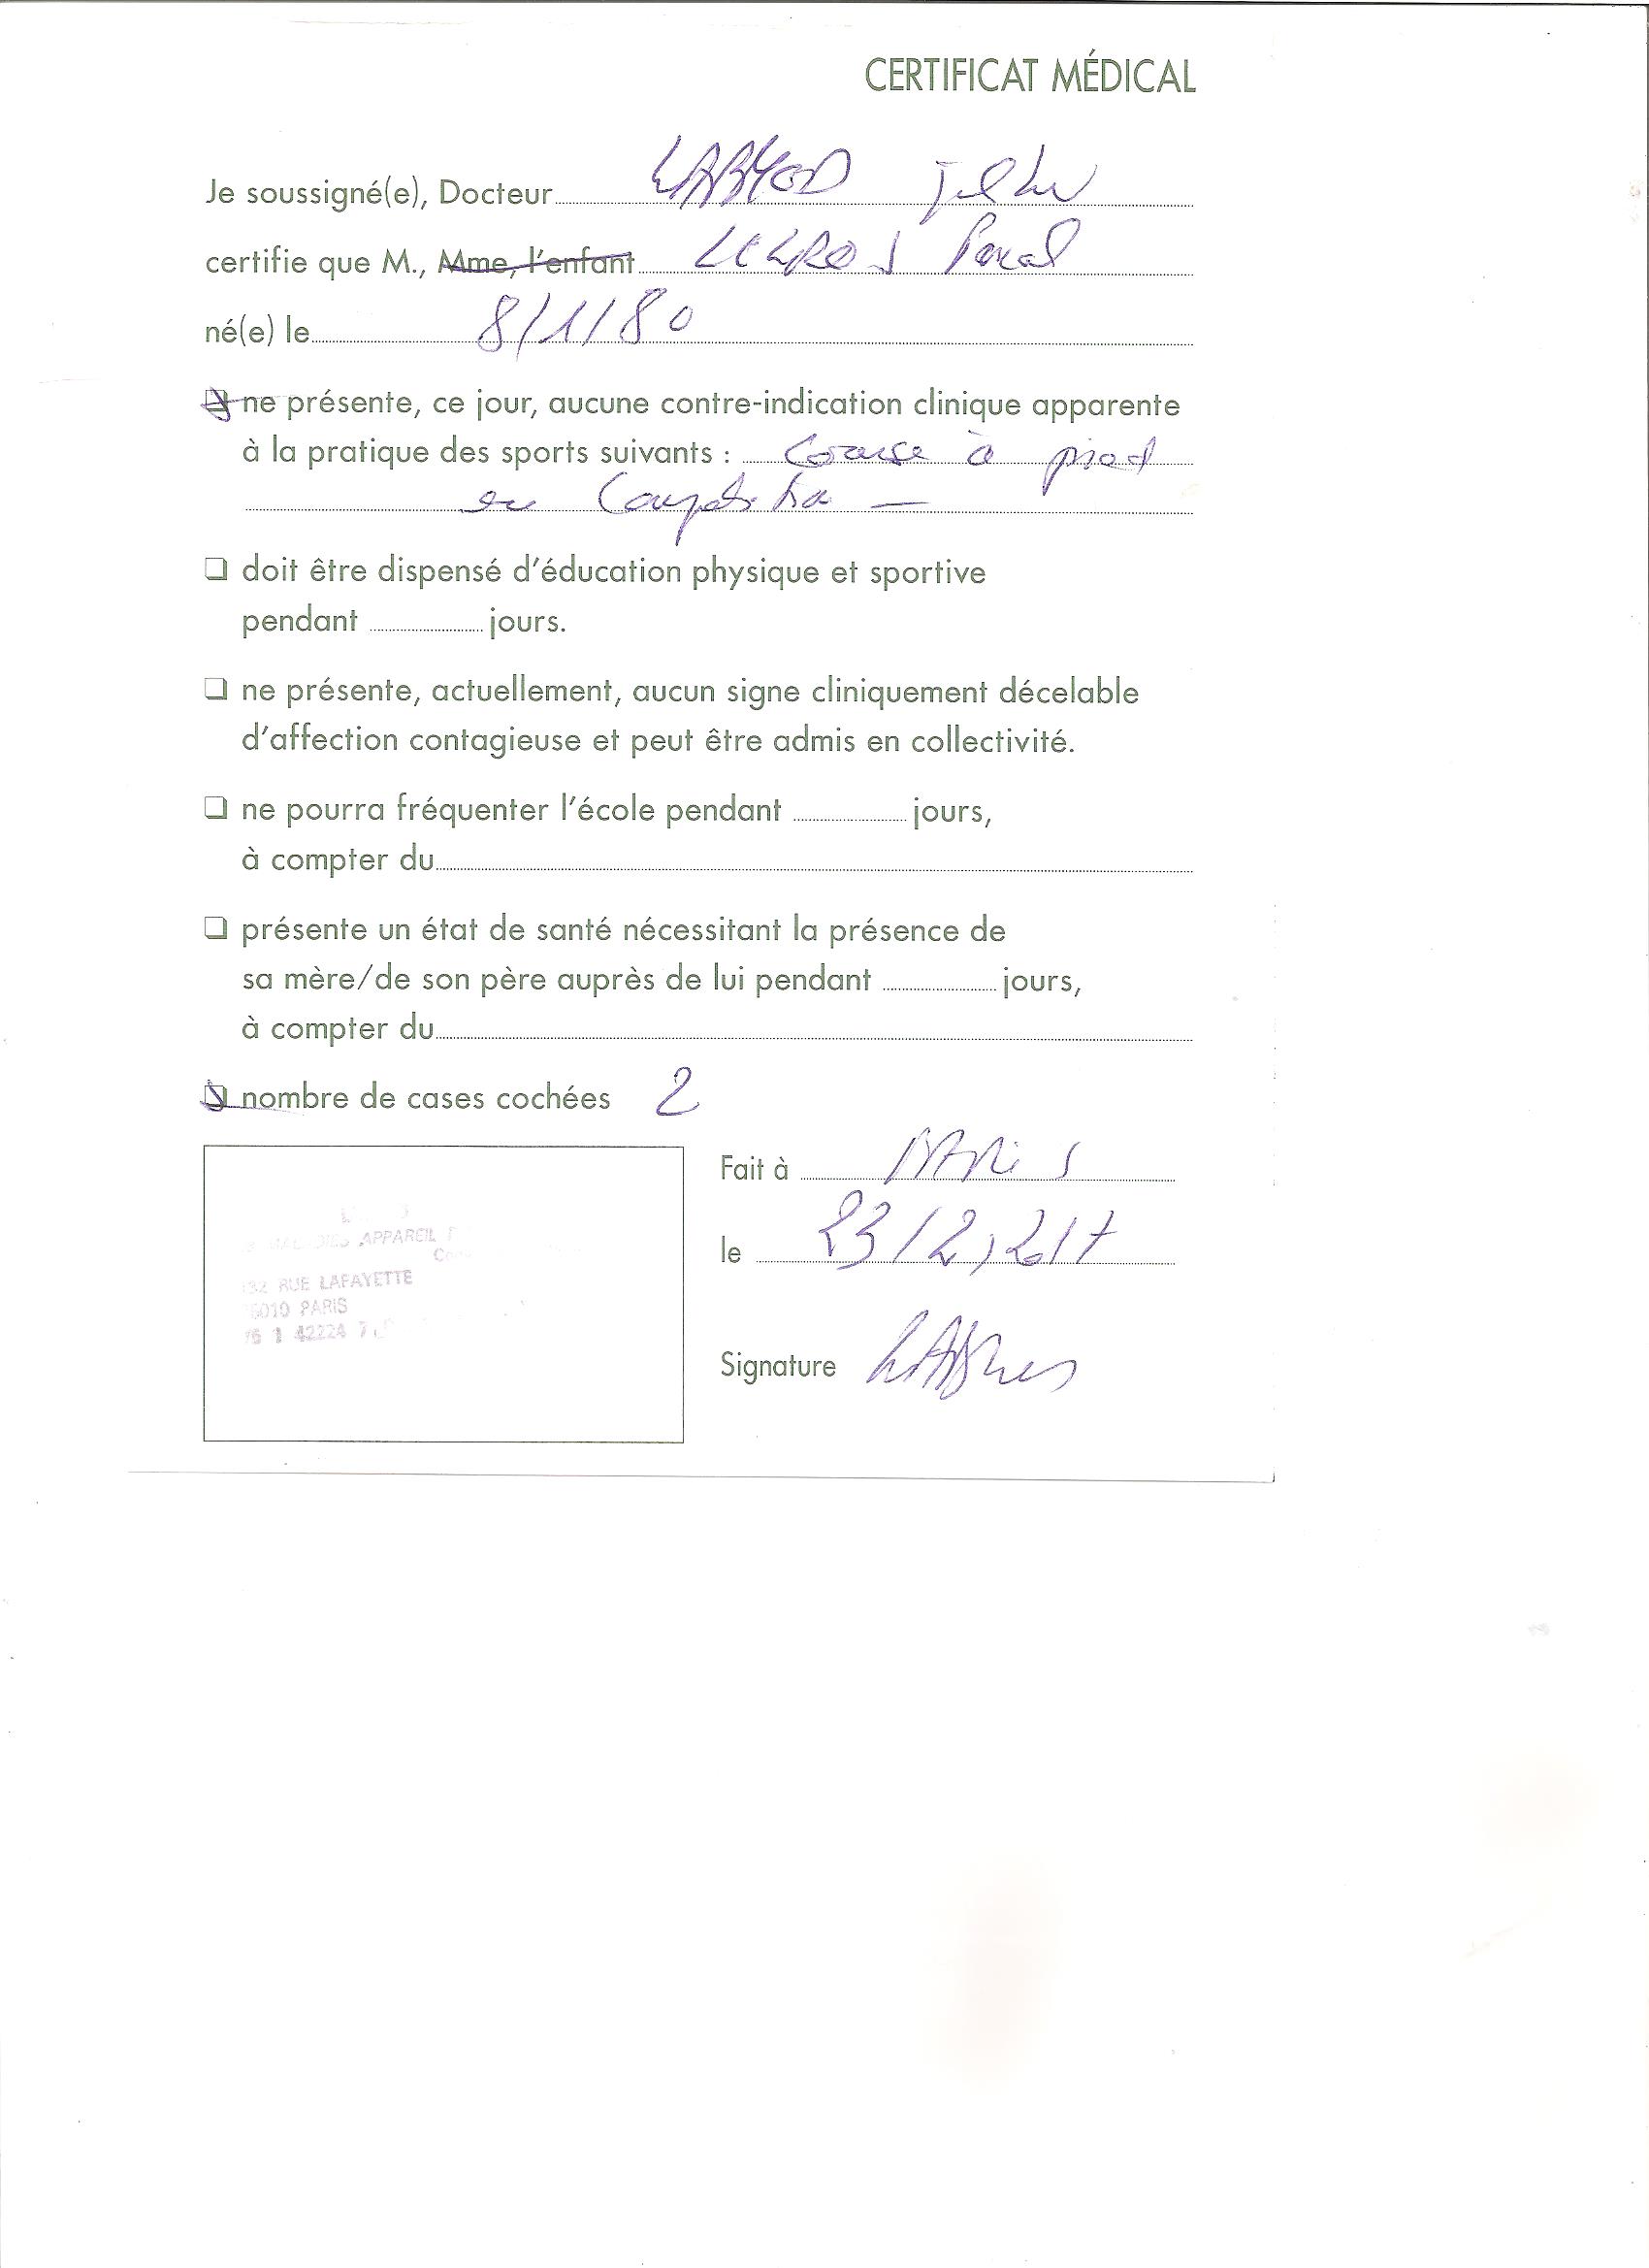 CERTIFICAT MÉDICAL
Je soussigné(e), Docteur
certifie que M., Mme, l'enfant
né(e) le 8/1/80
ne présente, ce jour, aucune contre-indication clinique apparente
à la pratique des sports suivants : Course à pied
en Compétition
doit être dispensé d'éducation physique et sportive
pendant jours.
ne présente, actuellement, aucun signe cliniquement décelable
d'affection contagieuse et peut être admis en collectivité.
ne pourra fréquenter l'école pendant jours,
à compter du
présente un état de santé nécessitant la présence de
sa mère/de son père auprès de lui pendant jours,
à compter du
nombre de cases cochées 2
Fait à PARIS
le 23/2/2017
APPAREIL
RUE LAFAYETTE
PARIS
Signature